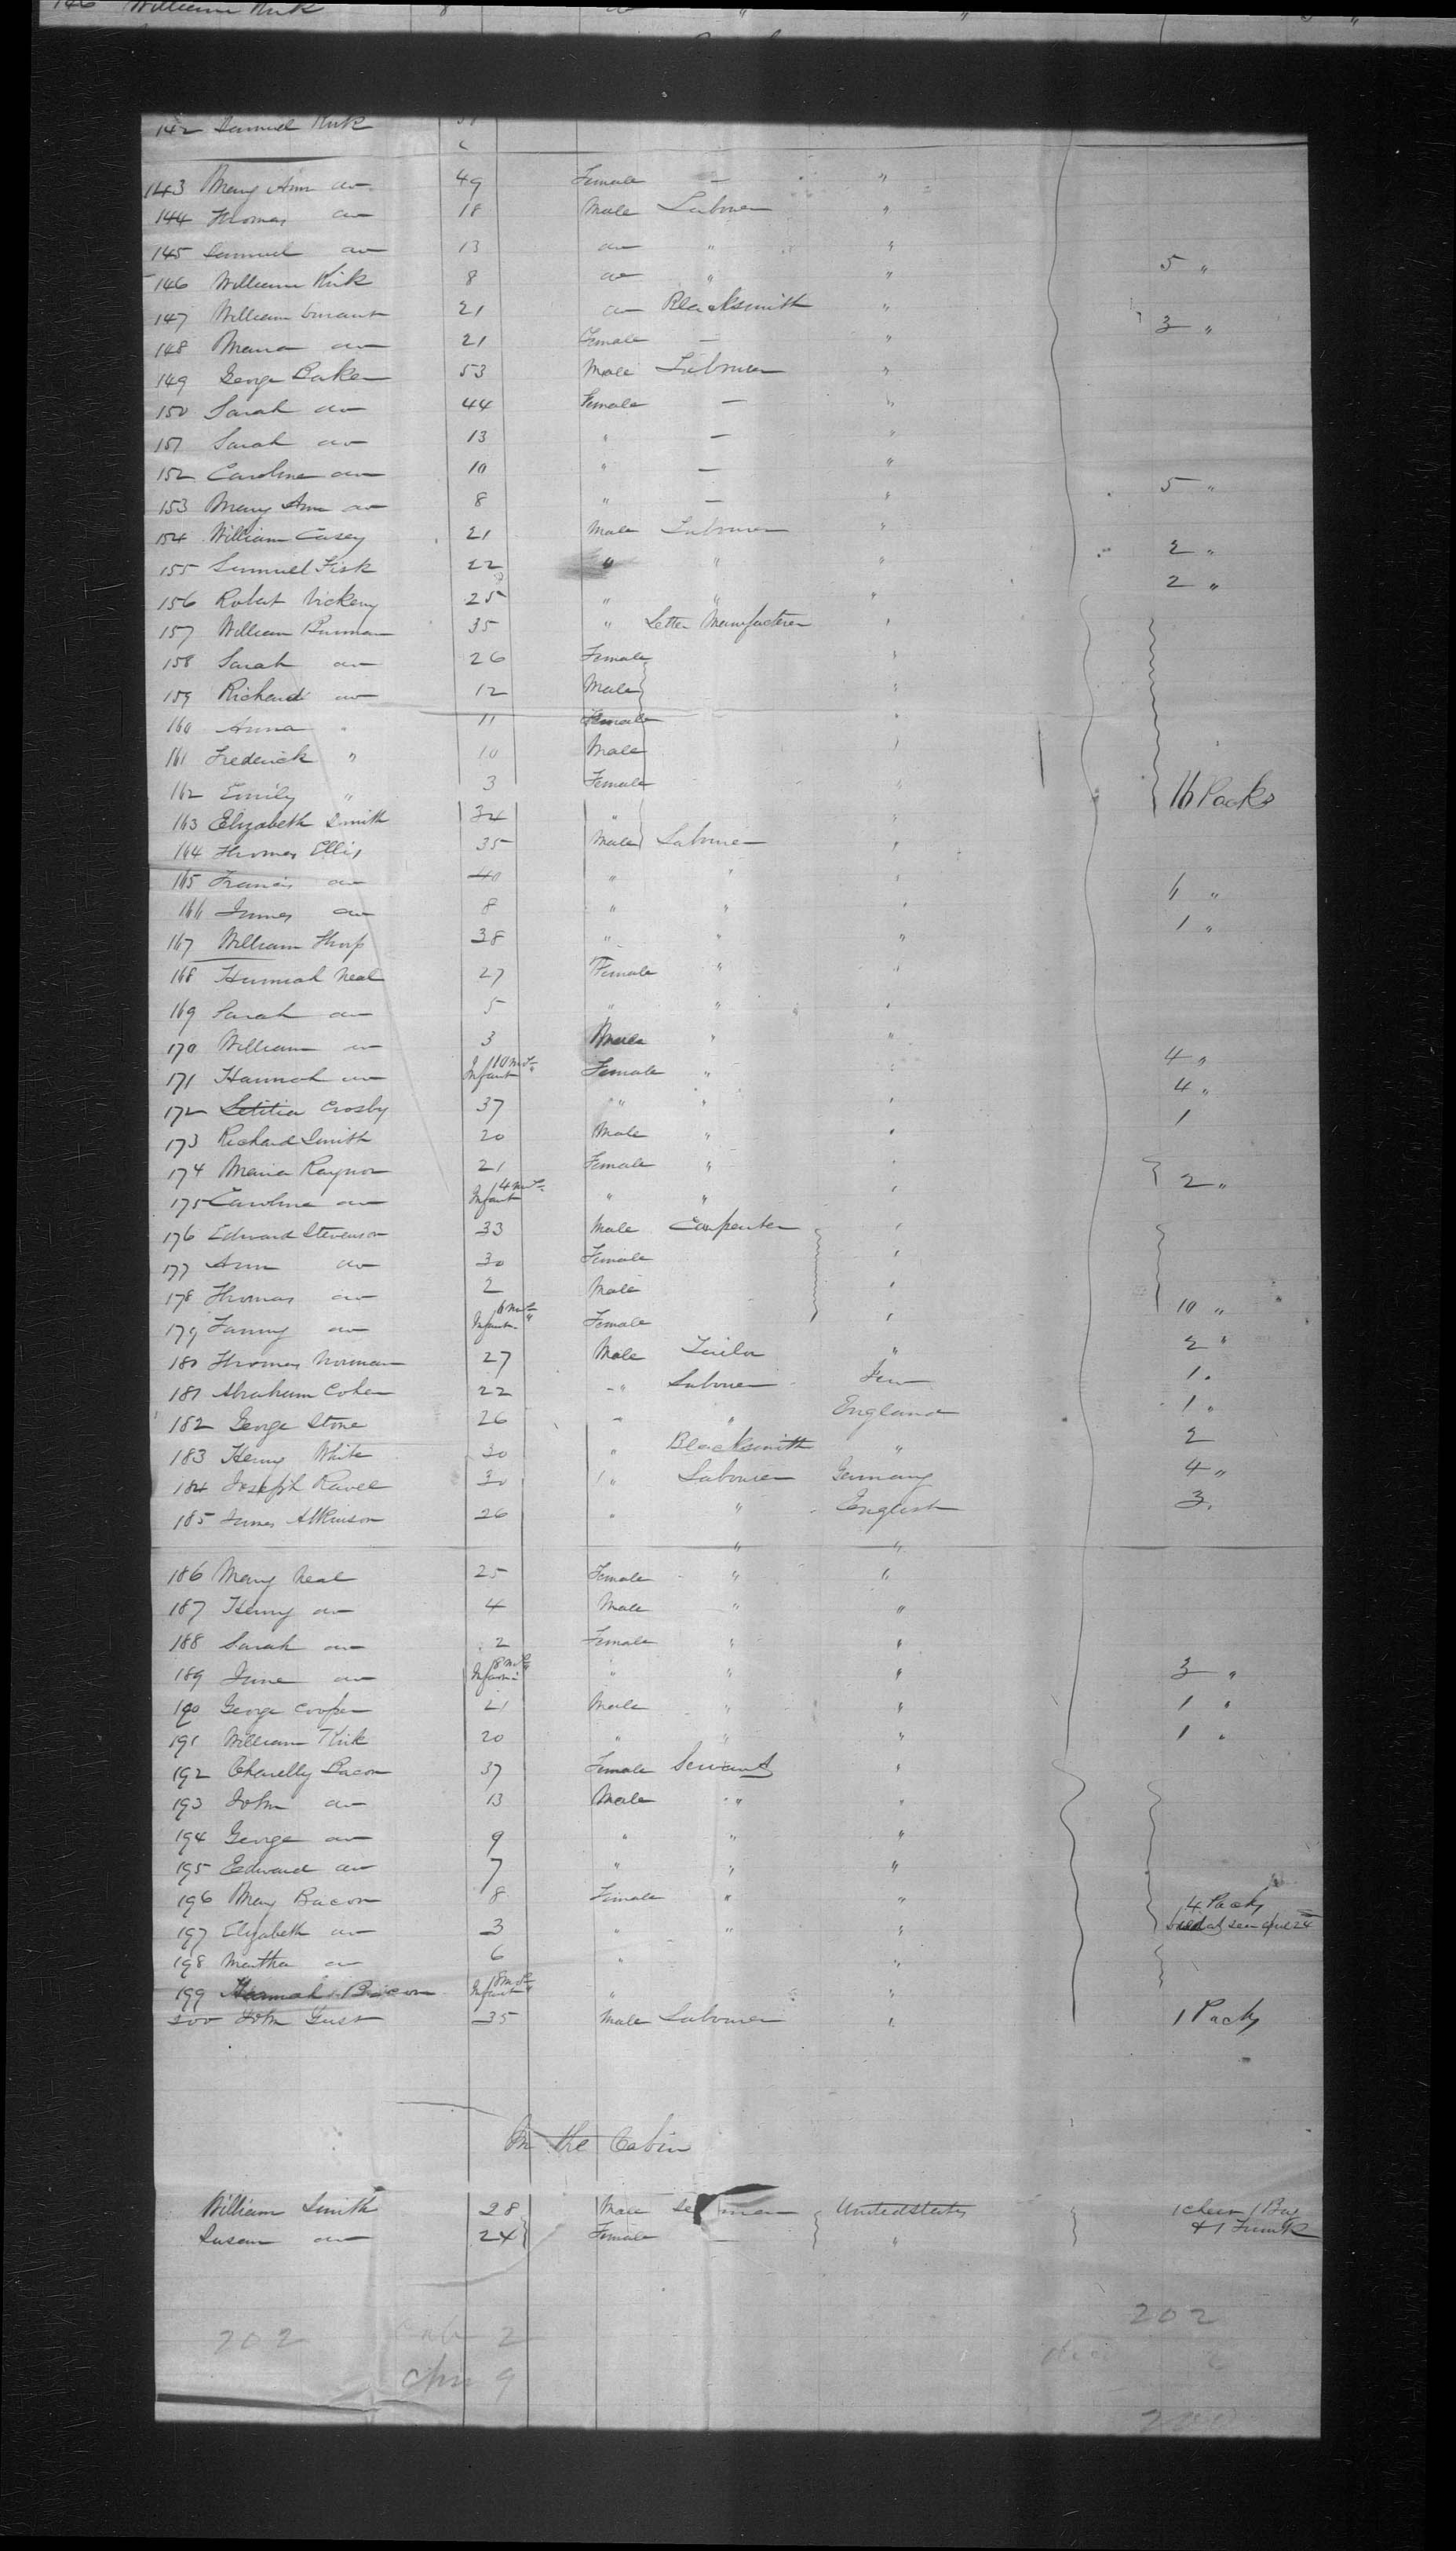 146 William Kirk 8 do " " 5 "
142 Samuel Kirk
143 Mary Ann do 49 Female — "
144 Thomas do 18 Male Labourer "
145 Samuel do 13 do " "
146 William Kirk 8 do " " 5 "
147 William 21 do Blacksmith "
148 Maria do 21 Female — " 3 "
149 George Baker 53 Male Labourer "
150 Sarah do 44 Female — "
151 Sarah do 13 " — "
152 Caroline do 10 " — "
153 Mary Ann do 8 " — " 5 "
154 William Casey 21 Male Labourer "
155 Samuel Fisk 22 " " " 2 "
156 Robert Vickery 25 " " " 2 "
157 William Burman 35 " Letter Manufacturer "
158 Sarah do 26 Female "
159 Richard do 12 Male "
160 Anna " 11 Female "
161 Frederick " 10 Male "
162 Emily " 3 Female " 16 Packs
163 Elizabeth Smith 34 " "
164 Thomas Ellis 35 Male Labourer "
165 Francis do 40 " " "
166 James do 8 " " " 6 "
167 William Thorp 38 " " " 1 "
168 Hannah Neal 27 Female " "
169 Sarah do 5 " " "
170 William do 3 Male " "
171 Hannah do Infant 10 mths Female " " 4 "
172 Letitia Crosby 37 " " " 4 "
173 Richard Smith 20 Male " " 1
174 Maria Raynor 21 Female " "
175 Caroline do Infant 4 mths " " " 2 "
176 Edward Stevenson 33 Male Carpenter "
177 Ann do 30 Female "
178 Thomas do 2 Male "
179 Fanny do Infant 6 mths Female " 10 "
180 Thomas Norman 27 Male Tailor " 2 "
181 Abraham Cohen 22 " Labourer Jew 1 "
182 George Stone 26 " " England 1 "
183 Henry White 30 " Blacksmith " 2
184 Joseph Ravel 30 " Labourer Germany 4 "
185 James Atkinson 26 " " English 3 "
" "
186 Mary Neal 25 Female " "
187 Henry do 4 Male " "
188 Sarah do 2 Female " "
189 Jane do Infant 8 mths " " " 3 "
190 George Cooper 21 Male " " 1 "
191 William Kirk 20 " " " 1 "
192 Bacon 37 Female Servant "
193 John do 13 Male " "
194 George do 9 " " "
195 Edward do 7 " " "
196 Mary Bacon 8 Female " " 4 Packs
197 Elizabeth do 3 " " " died at sea
198 Martha do 6 " "
199 Hannah Bacon Infant 18 mths " "
200 John Gust 35 Male Labourer " 1 Pack
In the Cabin
William Smith 28 Male United States 1 Bag
Susan do 24 Female — " & 1 Trunk
202
202 2
9